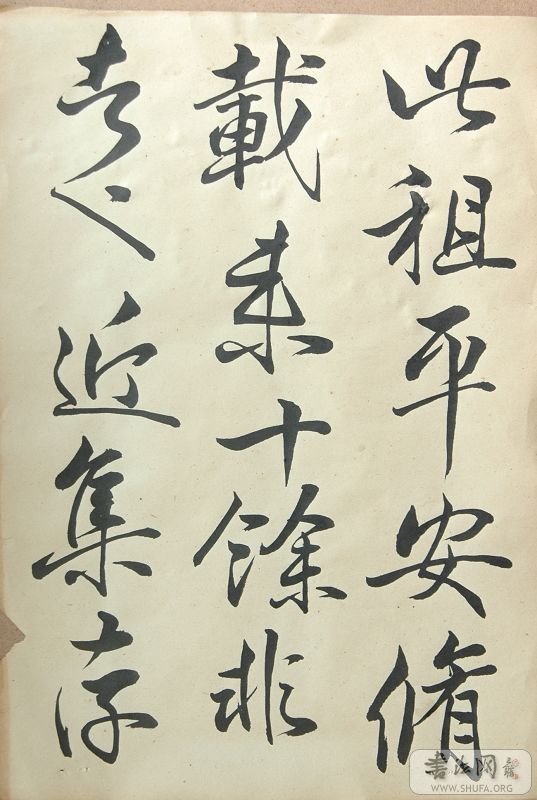 此祖平安脩
載来十餘非
者也近集存
書法网
WWW.SHUFA.ORG